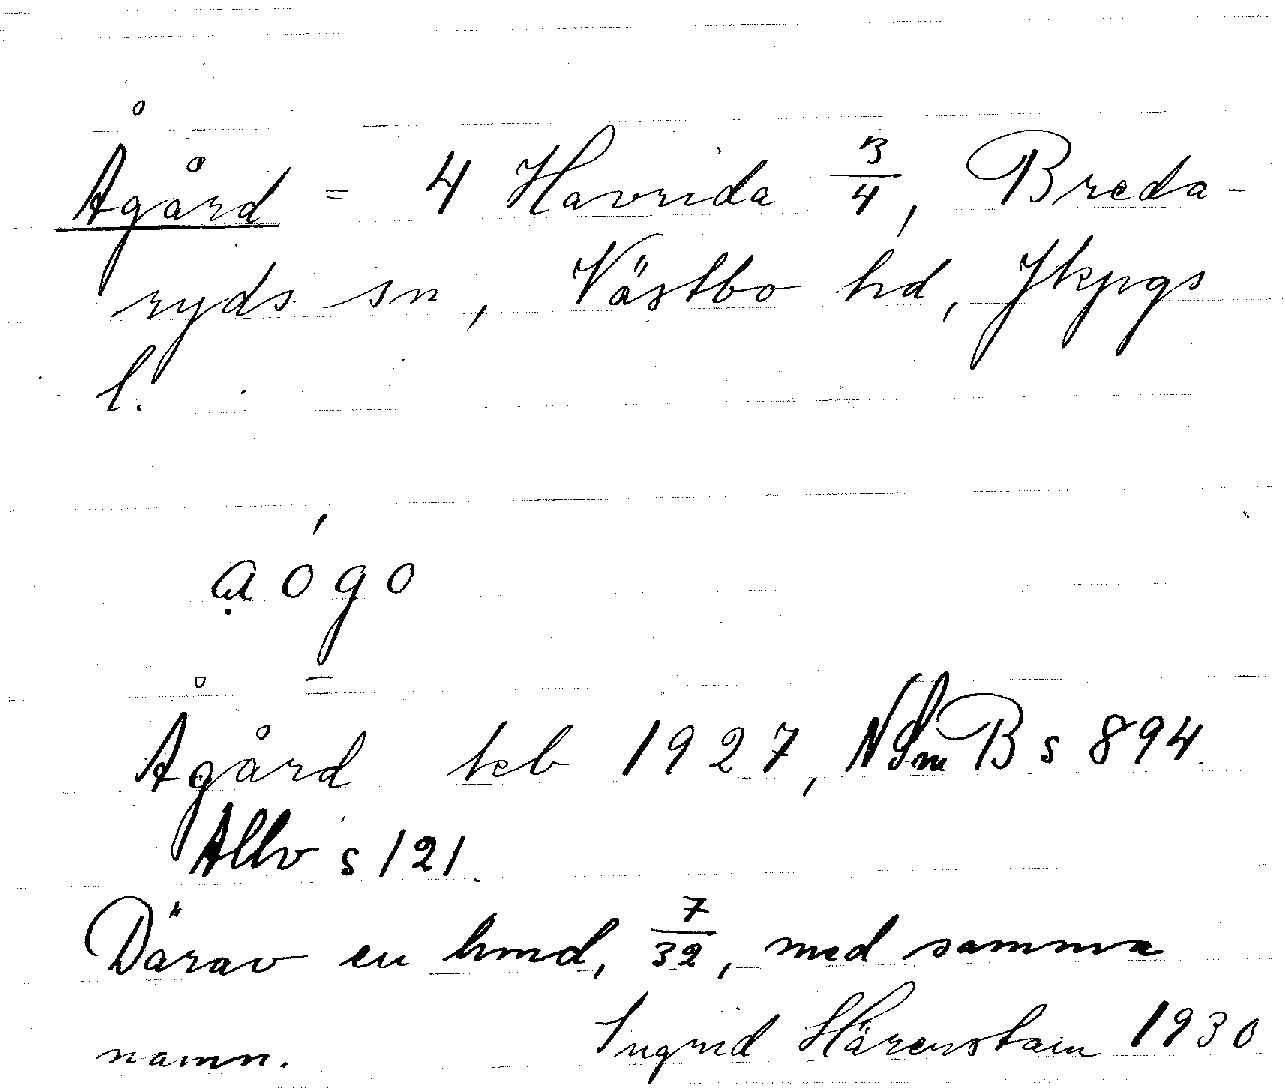 Ågård = 4 Havrida 3/4, Breda-
ryds sn, Västbo hd, Jkpgs
l.
a ó g o
Ågård teb 1927, NSmB s 894
Allv s 121.
Därav en hmd, 7/32, med samma
namn. Ingrid Härenstam 1930